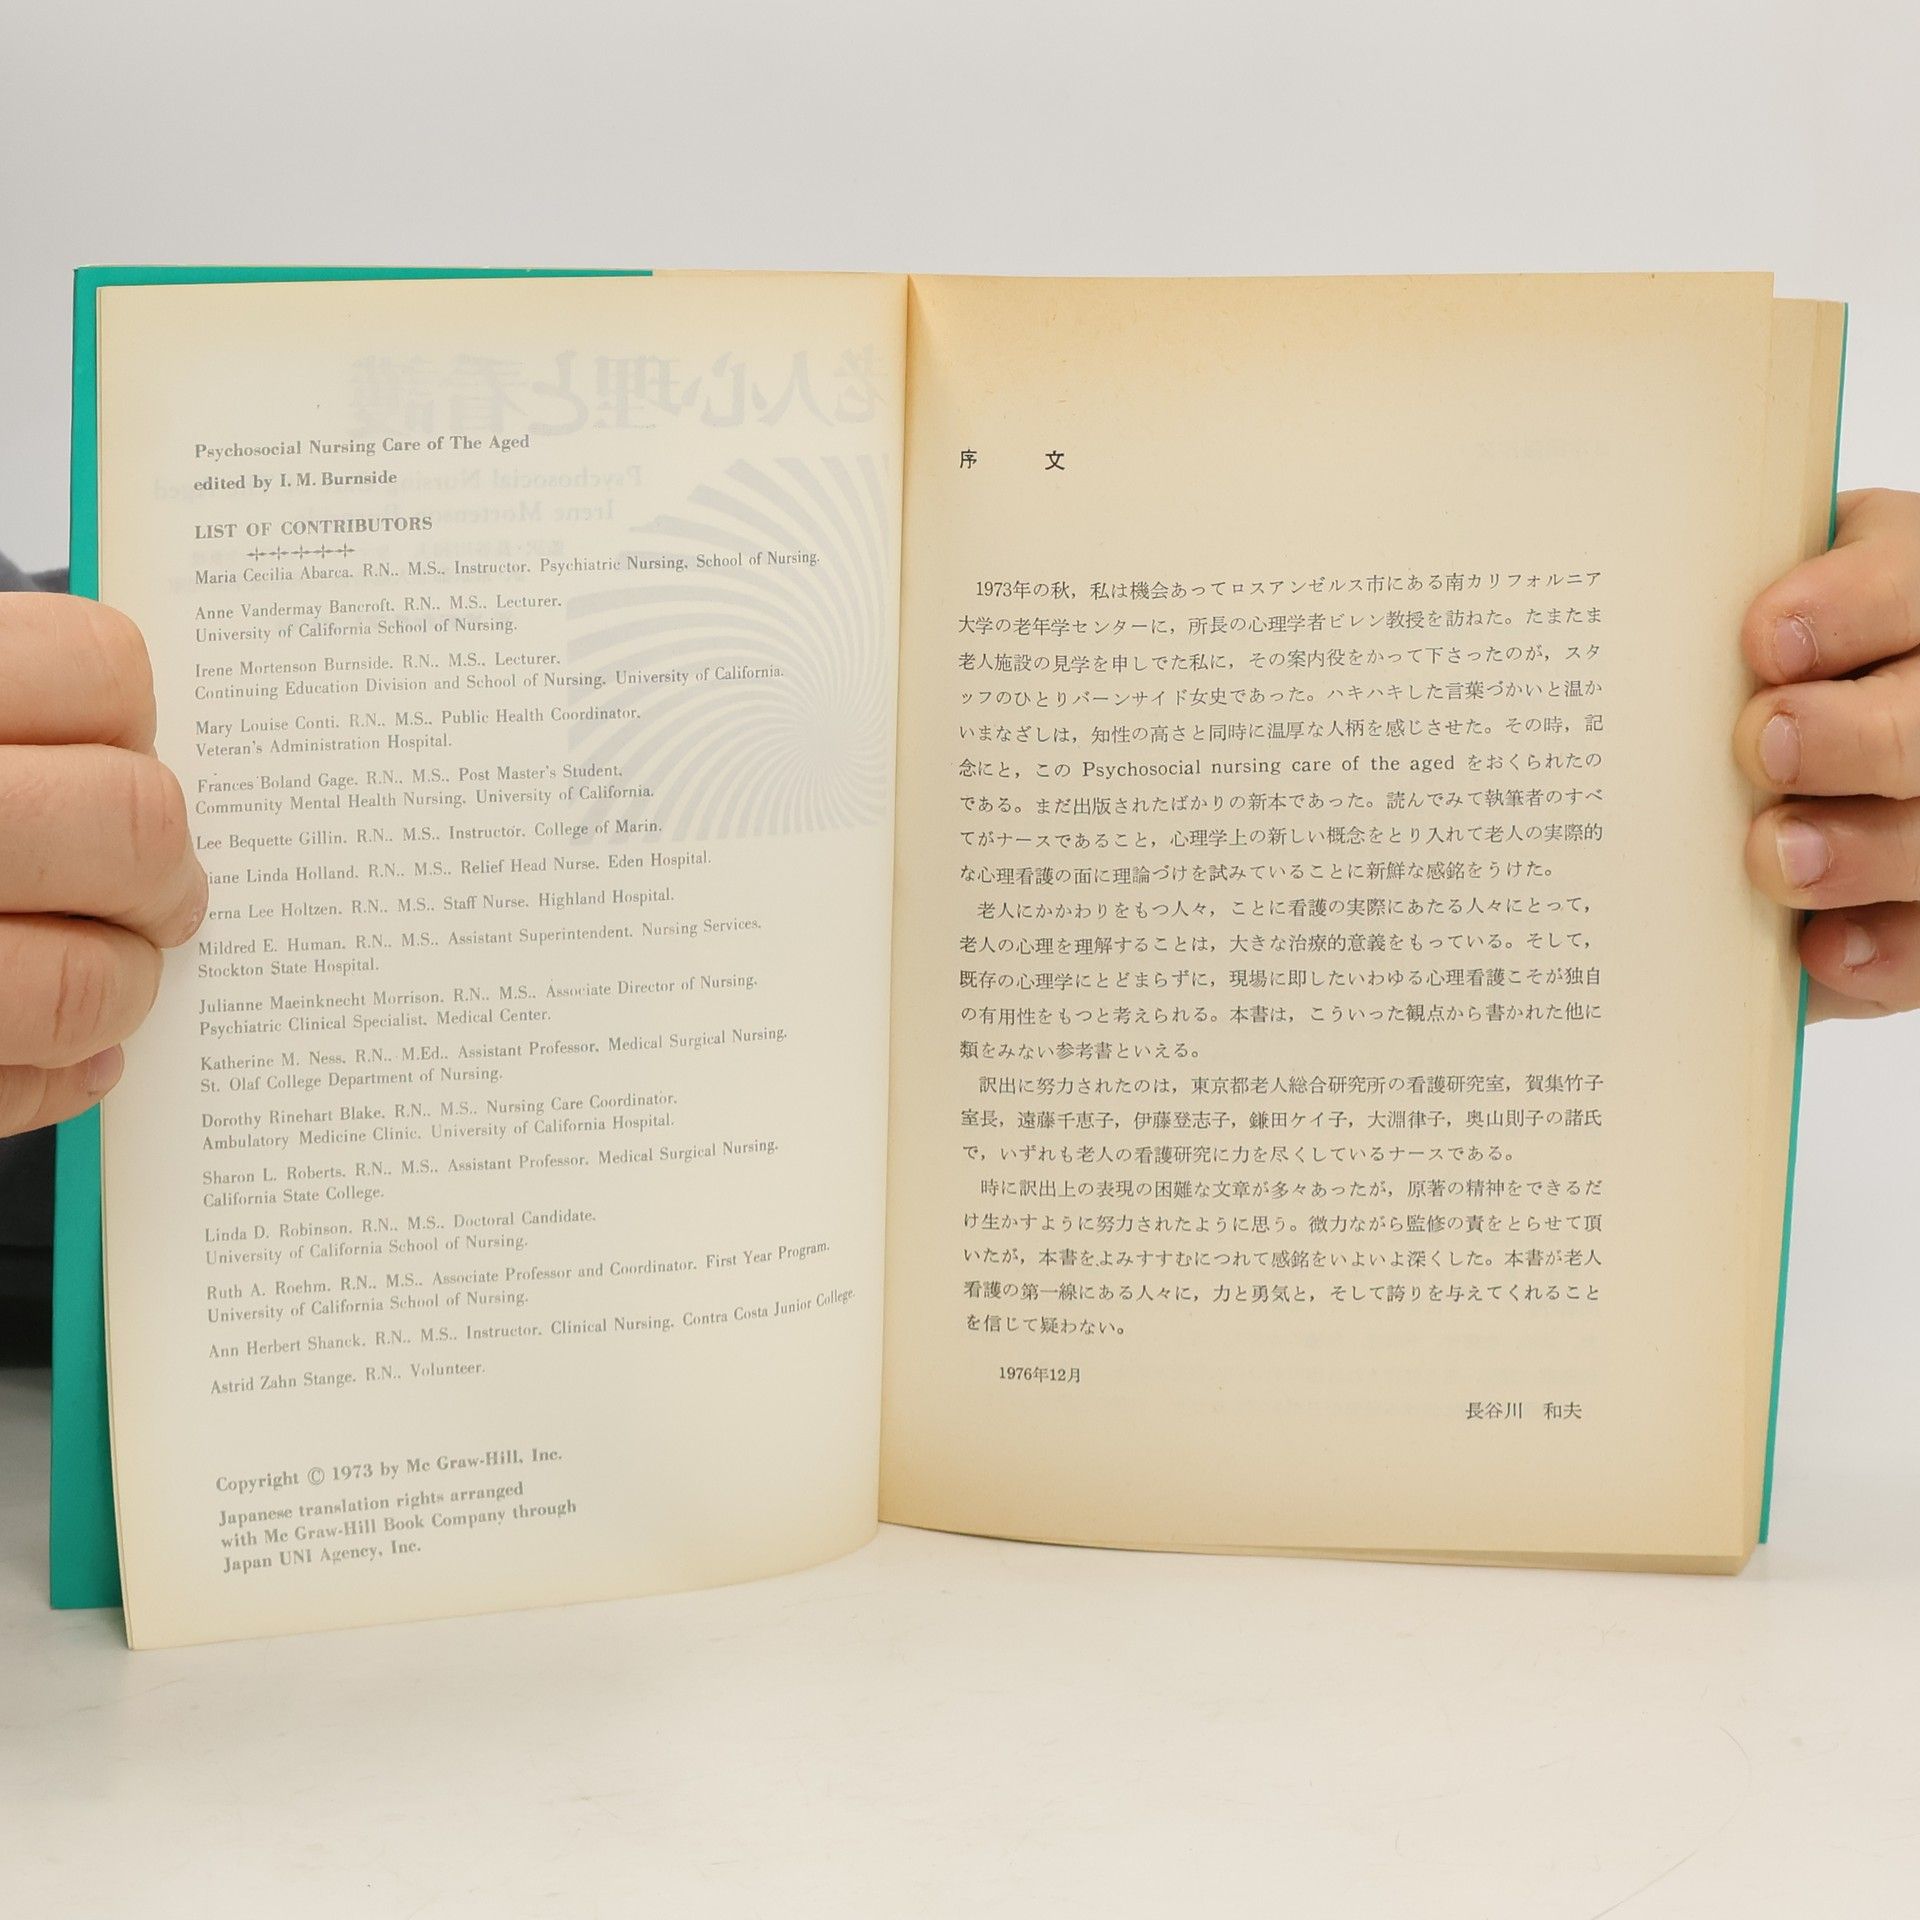 Psychosocial Nursing Care of The Aged
edited by I. M. Burnside
LIST OF CONTRIBUTORS
Maria Cecilia Abarca. R.N.. M.S.. Instructor. Psychiatric Nursing. School of Nursing.
Anne Vandermay Bancroft. R.N.. M.S.. Lecturer.
University of California School of Nursing.
Irene Mortenson Burnside. R.N.. M.S.. Lecturer.
Continuing Education Division and School of Nursing. University of California.
Mary Louise Conti. R.N.. M.S.. Public Health Coordinator.
Veteran's Administration Hospital.
Frances Boland Gage. R.N.. M.S.. Post Master's Student.
Community Mental Health Nursing. University of California.
Lee Bequette Gillin. R.N.. M.S.. Instructor. College of Marin.
iane Linda Holland. R.N.. M.S.. Relief Head Nurse. Eden Hospital.
erna Lee Holtzen. R.N.. M.S.. Staff Nurse. Highland Hospital.
Mildred E. Human. R.N.. M.S.. Assistant Superintendent. Nursing Services.
Stockton State Hospital.
Julianne Maeinknecht Morrison. R.N.. M.S.. Associate Director of Nursing.
Psychiatric Clinical Specialist. Medical Center.
Katherine M. Ness. R.N.. M.Ed.. Assistant Professor. Medical Surgical Nursing.
St. Olaf College Department of Nursing.
Dorothy Rinehart Blake. R.N.. M.S.. Nursing Care Coordinator.
Ambulatory Medicine Clinic. University of California Hospital.
Sharon L. Roberts. R.N.. M.S.. Assistant Professor. Medical Surgical Nursing.
California State College.
Linda D. Robinson. R.N.. M.S.. Doctoral Candidate.
University of California School of Nursing.
Ruth A. Roehm. R.N.. M.S.. Associate Professor and Coordinator. First Year Program.
University of California School of Nursing.
Ann Herbert Shanck. R.N.. M.S.. Instructor. Clinical Nursing. Contra Costa Junior College.
Astrid Zahn Stange. R.N.. Volunteer.
Copyright © 1973 by Mc Graw-Hill, Inc.
Japanese translation rights arranged
with Mc Graw-Hill Book Company through
Japan UNI Agency, Inc.
序　文
1973年の秋，私は機会あってロスアンゼルス市にある南カリフォルニア
大学の老年学センターに，所長の心理学者ビレン教授を訪ねた。たまたま
老人施設の見学を申しでた私に，その案内役をかって下さったのが，スタ
ッフのひとりバーンサイド女史であった。ハキハキした言葉づかいと温か
いまなざしは，知性の高さと同時に温厚な人柄を感じさせた。その時，記
念にと，この Psychosocial nursing care of the aged をおくられたの
である。まだ出版されたばかりの新本であった。読んでみて執筆者のすべ
てがナースであること，心理学上の新しい概念をとり入れて老人の実際的
な心理看護の面に理論づけを試みていることに新鮮な感銘をうけた。
老人にかかわりをもつ人々，ことに看護の実際にあたる人々にとって，
老人の心理を理解することは，大きな治療的意義をもっている。そして，
既存の心理学にとどまらずに，現場に即したいわゆる心理看護こそが独自
の有用性をもつと考えられる。本書は，こういった観点から書かれた他に
類をみない参考書といえる。
訳出に努力されたのは，東京都老人総合研究所の看護研究室，賀集竹子
室長，遠藤千恵子，伊藤登志子，鎌田ケイ子，大淵律子，奥山則子の諸氏
で，いずれも老人の看護研究に力を尽くしているナースである。
時に訳出上の表現の困難な文章が多々あったが，原著の精神をできるだ
け生かすように努力されたように思う。微力ながら監修の責をとらせて頂
いたが，本書をよみすすむにつれて感銘をいよいよ深くした。本書が老人
看護の第一線にある人々に，力と勇気と，そして誇りを与えてくれること
を信じて疑わない。
1976年12月
長谷川　和夫